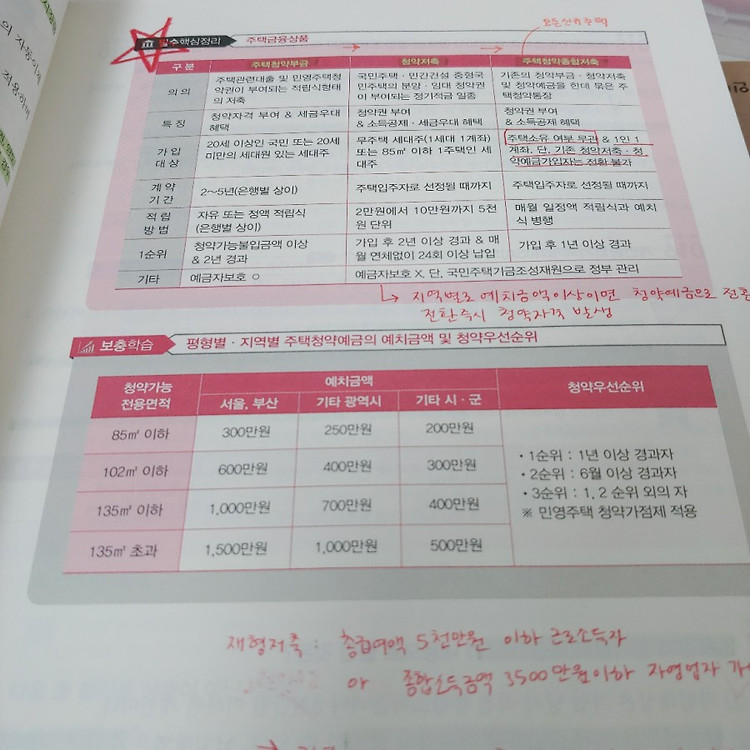 모든 신규주택
필수핵심정리 주택금융상품
구 분 주택청약부금 청약저축 주택청약종합저축
의 의 주택관련대출 및 민영주택청약권이 부여되는 적립식형태의 저축 국민주택·민간건설 중형국민주택의 분양·임대 청약권이 부여되는 정기적금 일종 기존의 청약부금·청약저축 및 청약예금을 한데 묶은 주택청약통장
특 징 청약자격 부여 & 세금우대 혜택 청약권 부여 & 소득공제·세금우대 혜택 청약권 부여 & 소득공제 혜택
가 입 대 상 20세 이상인 국민 또는 20세 미만의 세대원 있는 세대주 무주택 세대주(1세대 1계좌) 또는 85㎡ 이하 1주택인 세대주 주택소유 여부 무관 & 1인 1계좌, 단, 기존 청약저축·청약예금가입자는 전환 불가
계 약 기 간 2~5년(은행별 상이) 주택입주자로 선정될 때까지 주택입주자로 선정될 때까지
적 립 방 법 자유 또는 정액 적립식 (은행별 상이) 2만원에서 10만원까지 5천원 단위 매월 일정액 적립식과 예치식 병행
1순위 청약가능불입금액 이상 & 2년 경과 가입 후 2년 이상 경과 & 매월 연체없이 24회 이상 납입 가입 후 1년 이상 경과
기타 예금자보호 ○ 예금자보호 X, 단, 국민주택기금조성재원으로 정부 관리
→ 지역별로 예치금액이상이면 청약예금으로 전환
전환즉시 청약자격 발생
보충학습 평형별·지역별 주택청약예금의 예치금액 및 청약우선순위
청약가능 전용면적 예치금액 청약우선순위
서울, 부산 기타 광역시 기타 시·군
85㎡ 이하 300만원 250만원 200만원
102㎡ 이하 600만원 400만원 300만원
135㎡ 이하 1,000만원 700만원 400만원
135㎡ 초과 1,500만원 1,000만원 500만원
·1순위 : 1년 이상 경과자
·2순위 : 6월 이상 경과자
·3순위 : 1, 2 순위 외의 자
※ 민영주택 청약가점제 적용
재형저축 : 총급여액 5천만원 이하 근로소득자
or 종합소득금액 3500만원이하 자영업자